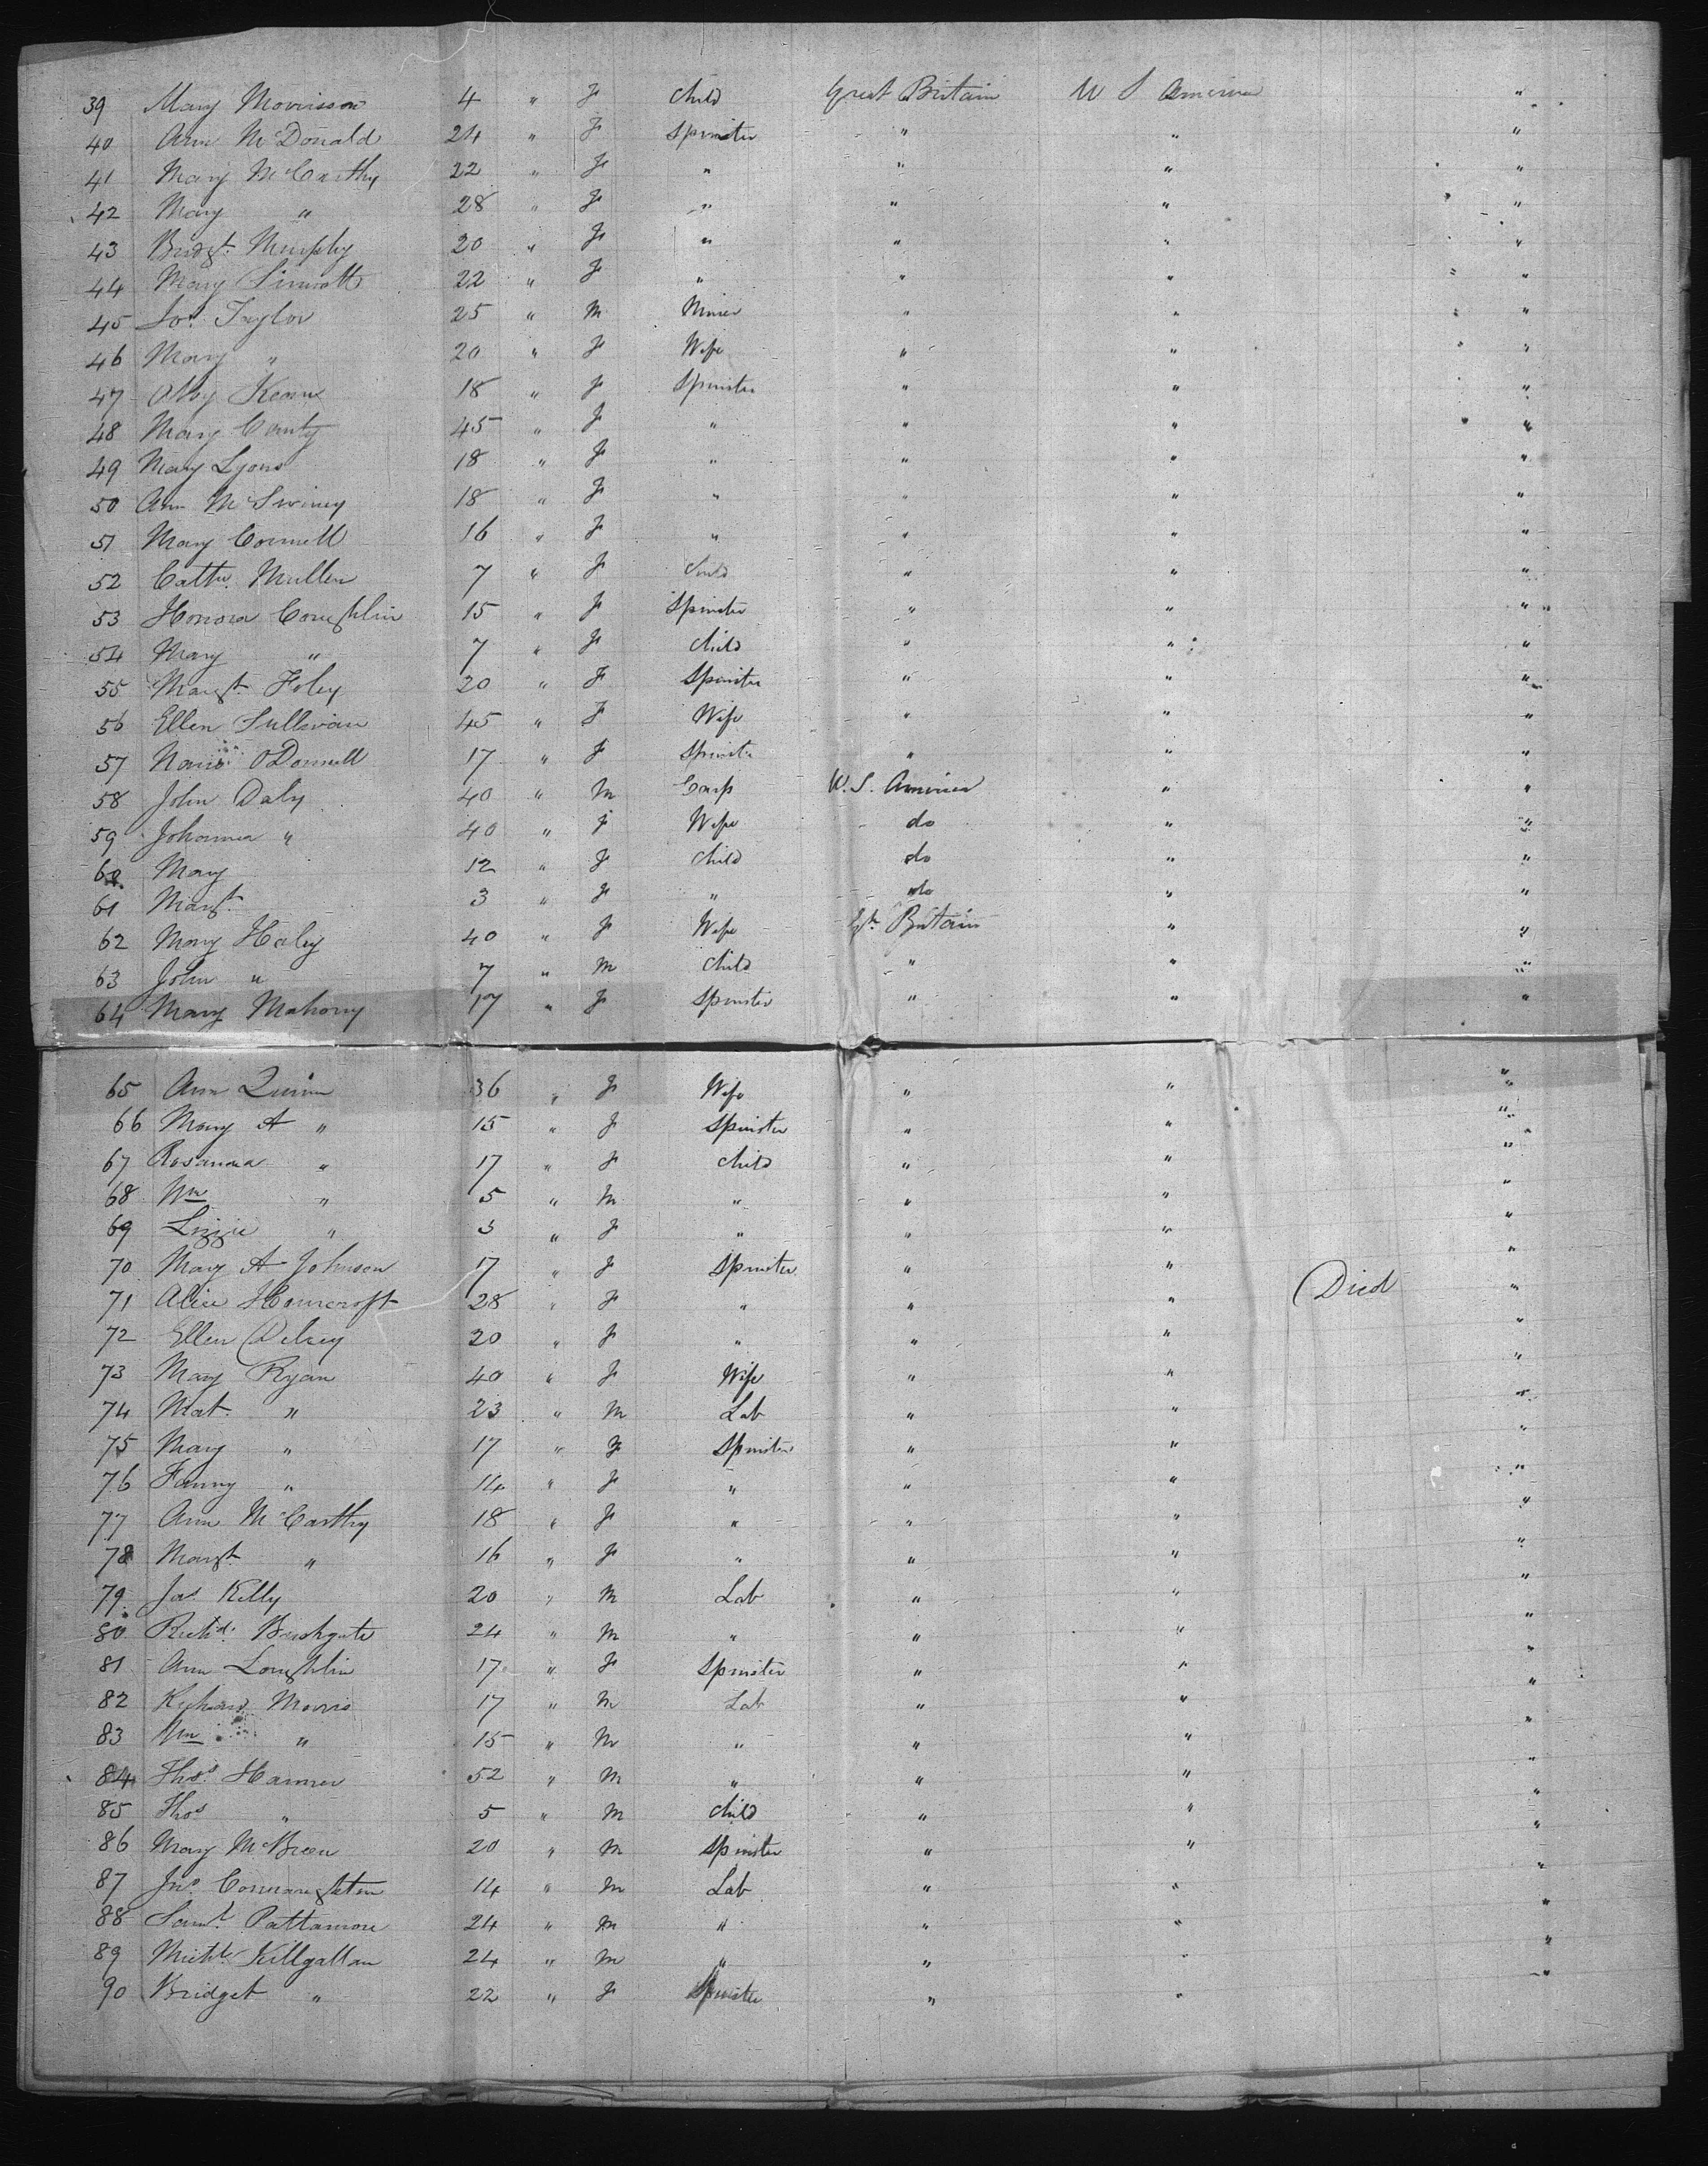 39 Mary Morrisson 4 " F Child Great Britain U S America "
40 Ann McDonald 24 " F Spinster " " "
41 Mary McCarthy 22 " F " " " "
42 Mary " 28 " F " " " "
43 Bridgt. Murphy 20 " F " " " "
44 Mary Sinnott 22 " F " " " "
45 Jos. Taylor 25 " M Miner " " "
46 Mary " 20 " F Wife " " "
47 Keane 18 " F Spinster " " "
48 Mary Canty 45 " F " " " "
49 Mary Lyons 18 " F " " " "
50 Ann McSwiney 18 " F " " " "
51 Mary Connell 16 " F " " " "
52 Cathe. Mullen 7 " F Child " " "
53 Honora Coughlin 15 " F Spinster " " "
54 Mary " 7 " F Child " " "
55 Margt. Foley 20 " F Spinster " " "
56 Ellen Sullivan 45 " F Wife " " "
57 O'Donnell 17 " F Spinster " " "
58 John Daly 40 " M Carp U.S. America " "
59 Johanna " 40 " F Wife do " "
60 Mary 12 " F Child do " "
61 Margt. 3 " F " do " "
62 Mary Haley 40 " F Wife Gt. Britain " "
63 John " 7 " M Child " " "
64 Mary Mahony 17 " F Spinster " " "
65 Ann Quinn 36 " F Wife " " "
66 Mary A " 15 " F Spinster " " "
67 Rosanna " 17 " F Child " " "
68 Wm " 5 " M " " " "
69 Lizzie " 3 " F " " " "
70 Mary A Johnson 17 " F Spinster " " "
71 Alice Howcroft 28 " F " " " Died "
72 Ellen Delsey 20 " F " " " "
73 Mary Ryan 40 " F Wife " " "
74 Mat. " 23 " M Lab " " "
75 Mary " 17 " F Spinster " " "
76 Fanny " 14 " F " " " "
77 Ann McCarthy 18 " F " " " "
78 Margt. " 16 " F " " " "
79 Jas Kelly 20 " M Lab " " "
80 Richd. Bushgate 24 " M " " " "
81 Ann Loughlin 17 " F Spinster " " "
82 Morris 17 " M Lab " " "
83 Wm " 15 " M " " " "
84 Thos. Hanmer 52 " M " " " "
85 Thos " 5 " M Child " " "
86 Mary McBreen 20 " M Spinster " " "
87 Jno. Connaughton 14 " M Lab " " "
88 Saml. Pattamore 24 " M " " " "
89 Michl. Killgallan 24 " M " " " "
90 Bridget " 22 " F Spinster " " "